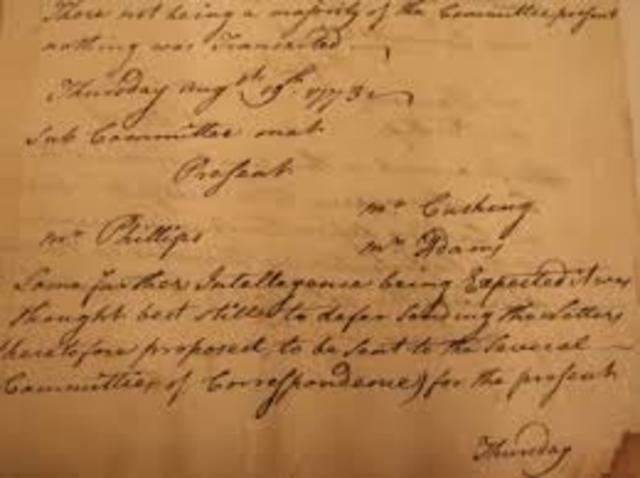 There not being a majority of the Committee present
nothing was Transacted
Thursday Augst. 19th. 1773
Sub Committee met
Present
Mr Cushing
Mr Phillips
Mr Adams
Some further Intellegence being Expected it was
thought best still to defer sending the Letters
heretofore proposed to be sent to the several
Committees of Correspondence, for the present
Thursday